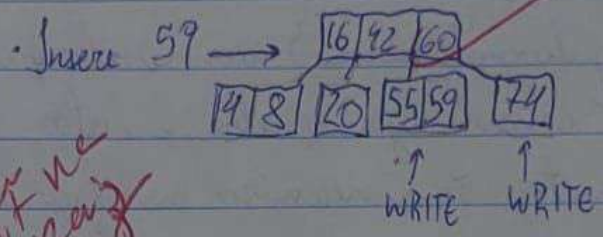 · Insere 59 → 16 42 60
4 8 20 55 59 74
↑ ↑
WRITE WRITE